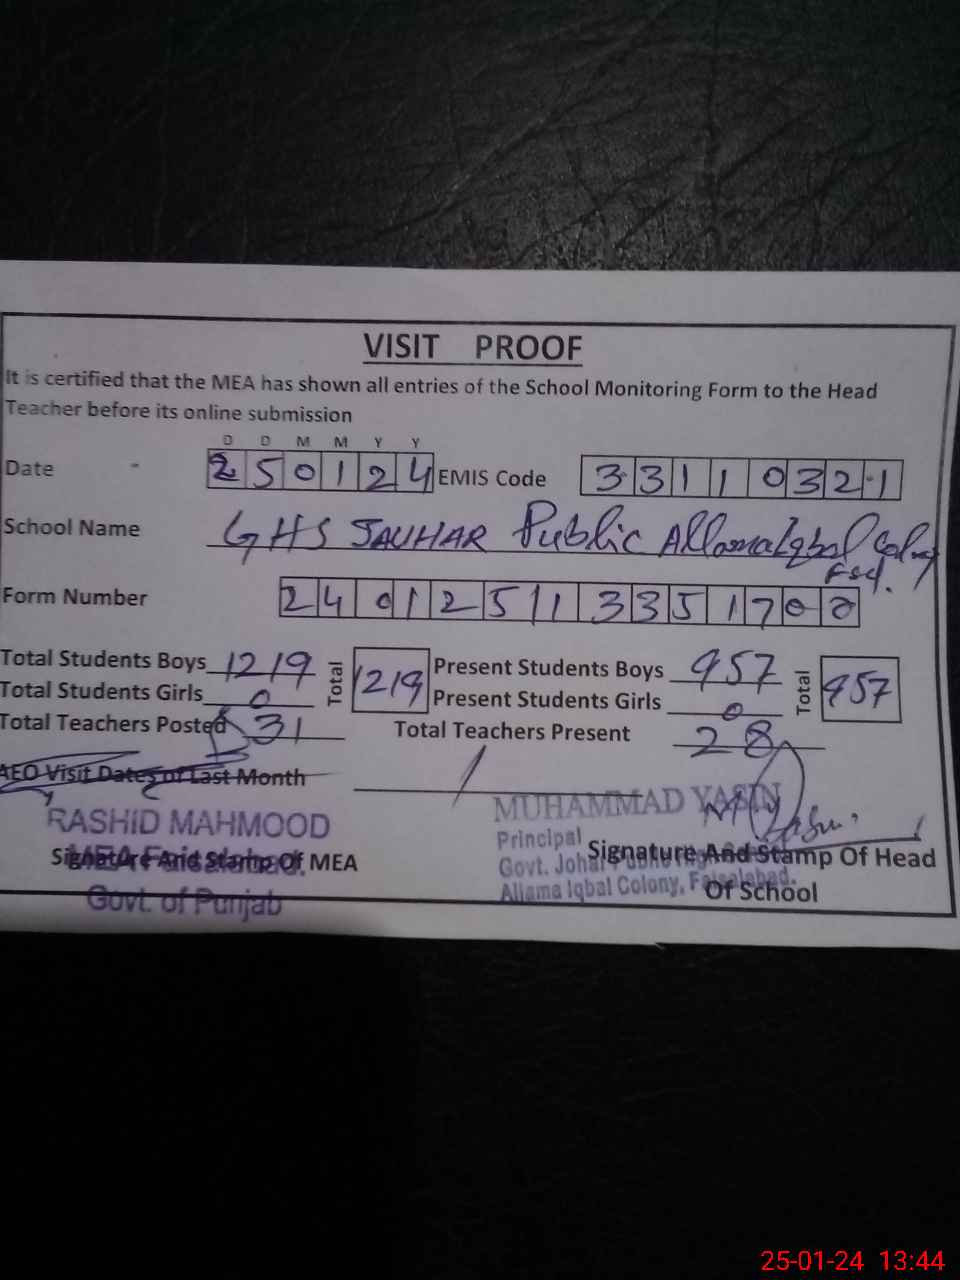 VISIT PROOF
It is certified that the MEA has shown all entries of the School Monitoring Form to the Head
Teacher before its online submission
D D M M Y Y
Date 2 5 0 1 2 4 EMIS Code 3 3 1 1 0 3 2 1
School Name GHS JAUHAR Public Allama Iqbal Colny
Fsd.
Form Number 2 4 0 1 2 5 1 1 3 3 5 1 7 0 0
Total Students Boys 1219 Total 1219 Present Students Boys 957 Total 957
Total Students Girls 0 Present Students Girls 0
Total Teachers Posted 31 Total Teachers Present 28
AEO Visit Dates of Last Month /
RASHID MAHMOOD MUHAMMAD YASIN
Principal
Signature And Stamp Of MEA Signature And Stamp Of Head
MEA Faisalabad. Govt. Johar Public
Govt. of Punjab Allama Iqbal Colony, Faisalabad.
Of School
25-01-24 13:44